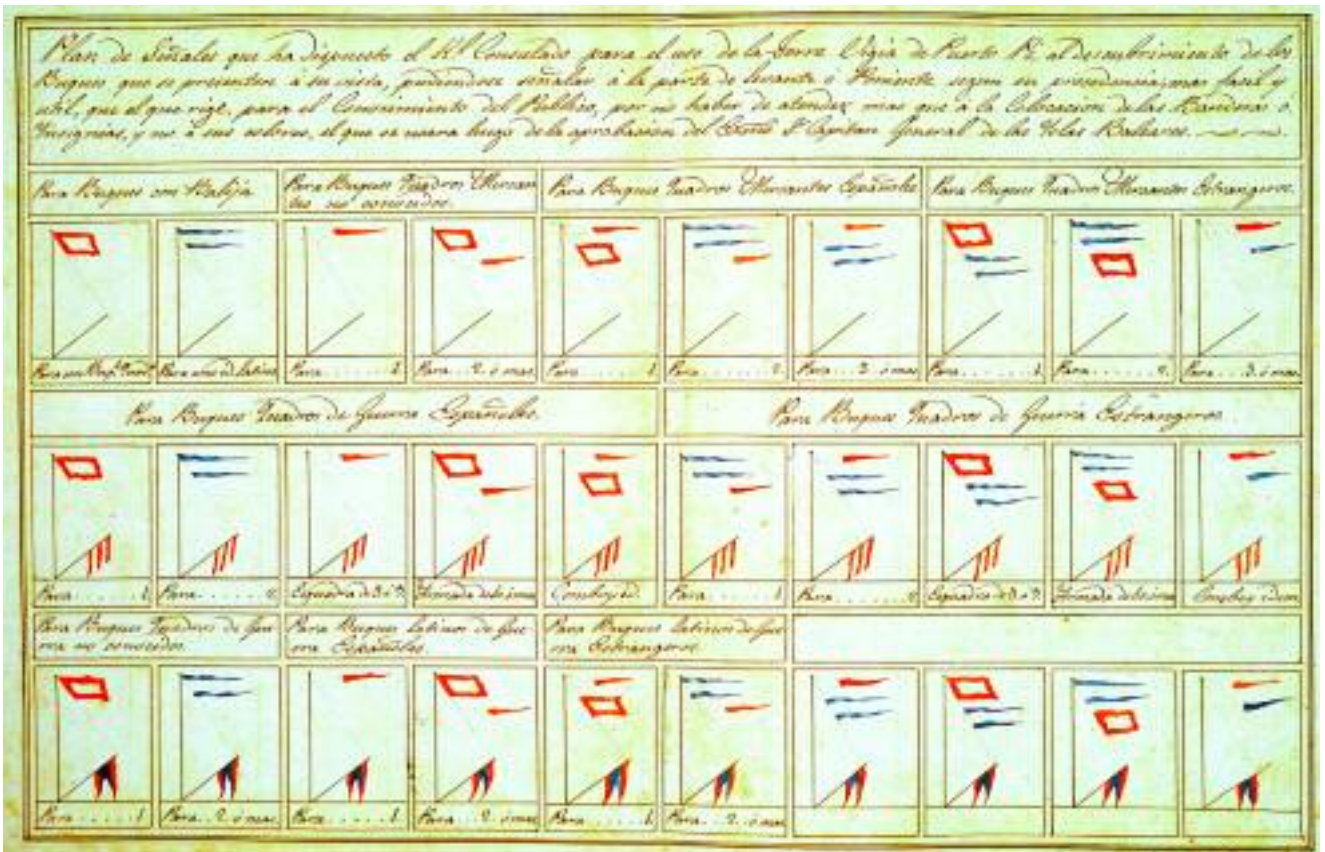 Plan de Señales que ha dispuesto el Rl. Consulado para el uso de la Torre Vigia de Puerto Pi, al descubrimiento de los
Buques que se presenten á su vista, pudiendose señalar á la parte de levante ó Poniente segun su procedencia; mas facil y
util, que el que rige, para el Conocimiento del Publico, por no haber de atender mas que á la Colocacion de las Banderas ó
Insignias, y no á sus colores, el que se usara luego de la aprobacion del Capitan General de las Yslas Baleares.
Para Buques con Balija
Para Buques Quadros Mercan
tes no conocidos.
Para Buques Quadros Mercantes Españoles
Para Buques Quadros Mercantes Estrangeros.
Para un
Para uno id. latino
Para . . . . . . . 1.
Para . . 2. ó mas
Para . . . . . 1.
Para . . . . . . 2.
Para . . . 3. ó mas
Para . . . . . . 1.
Para . . . . . . 2.
Para . . . 3. ó mas
Para Buques Quadros de Guerra Españoles.
Para Buques Quadros de Guerra Estrangeros.
Para . . . . . 1.
Para . . . . . 2.
Esquadra de 3 á 9.
Armada de 10 ó mas
Comboy id.
Para . . . . . 1.
Para . . . . . . 2.
Esquadra de 3 á 9.
Armada de 10 ó mas
Comboy idem
Para Buques Quadros de Gue
rra no conocidos.
Para Buques latinos de Gue
rra Españoles.
Para Buques latinos de Gue
rra Estrangeros.
Para . . . . . 1.
Para . . 2. ó mas
Para . . . . . 1.
Para . . 2. ó mas
Para . . . . . 1.
Para . . 2. ó mas